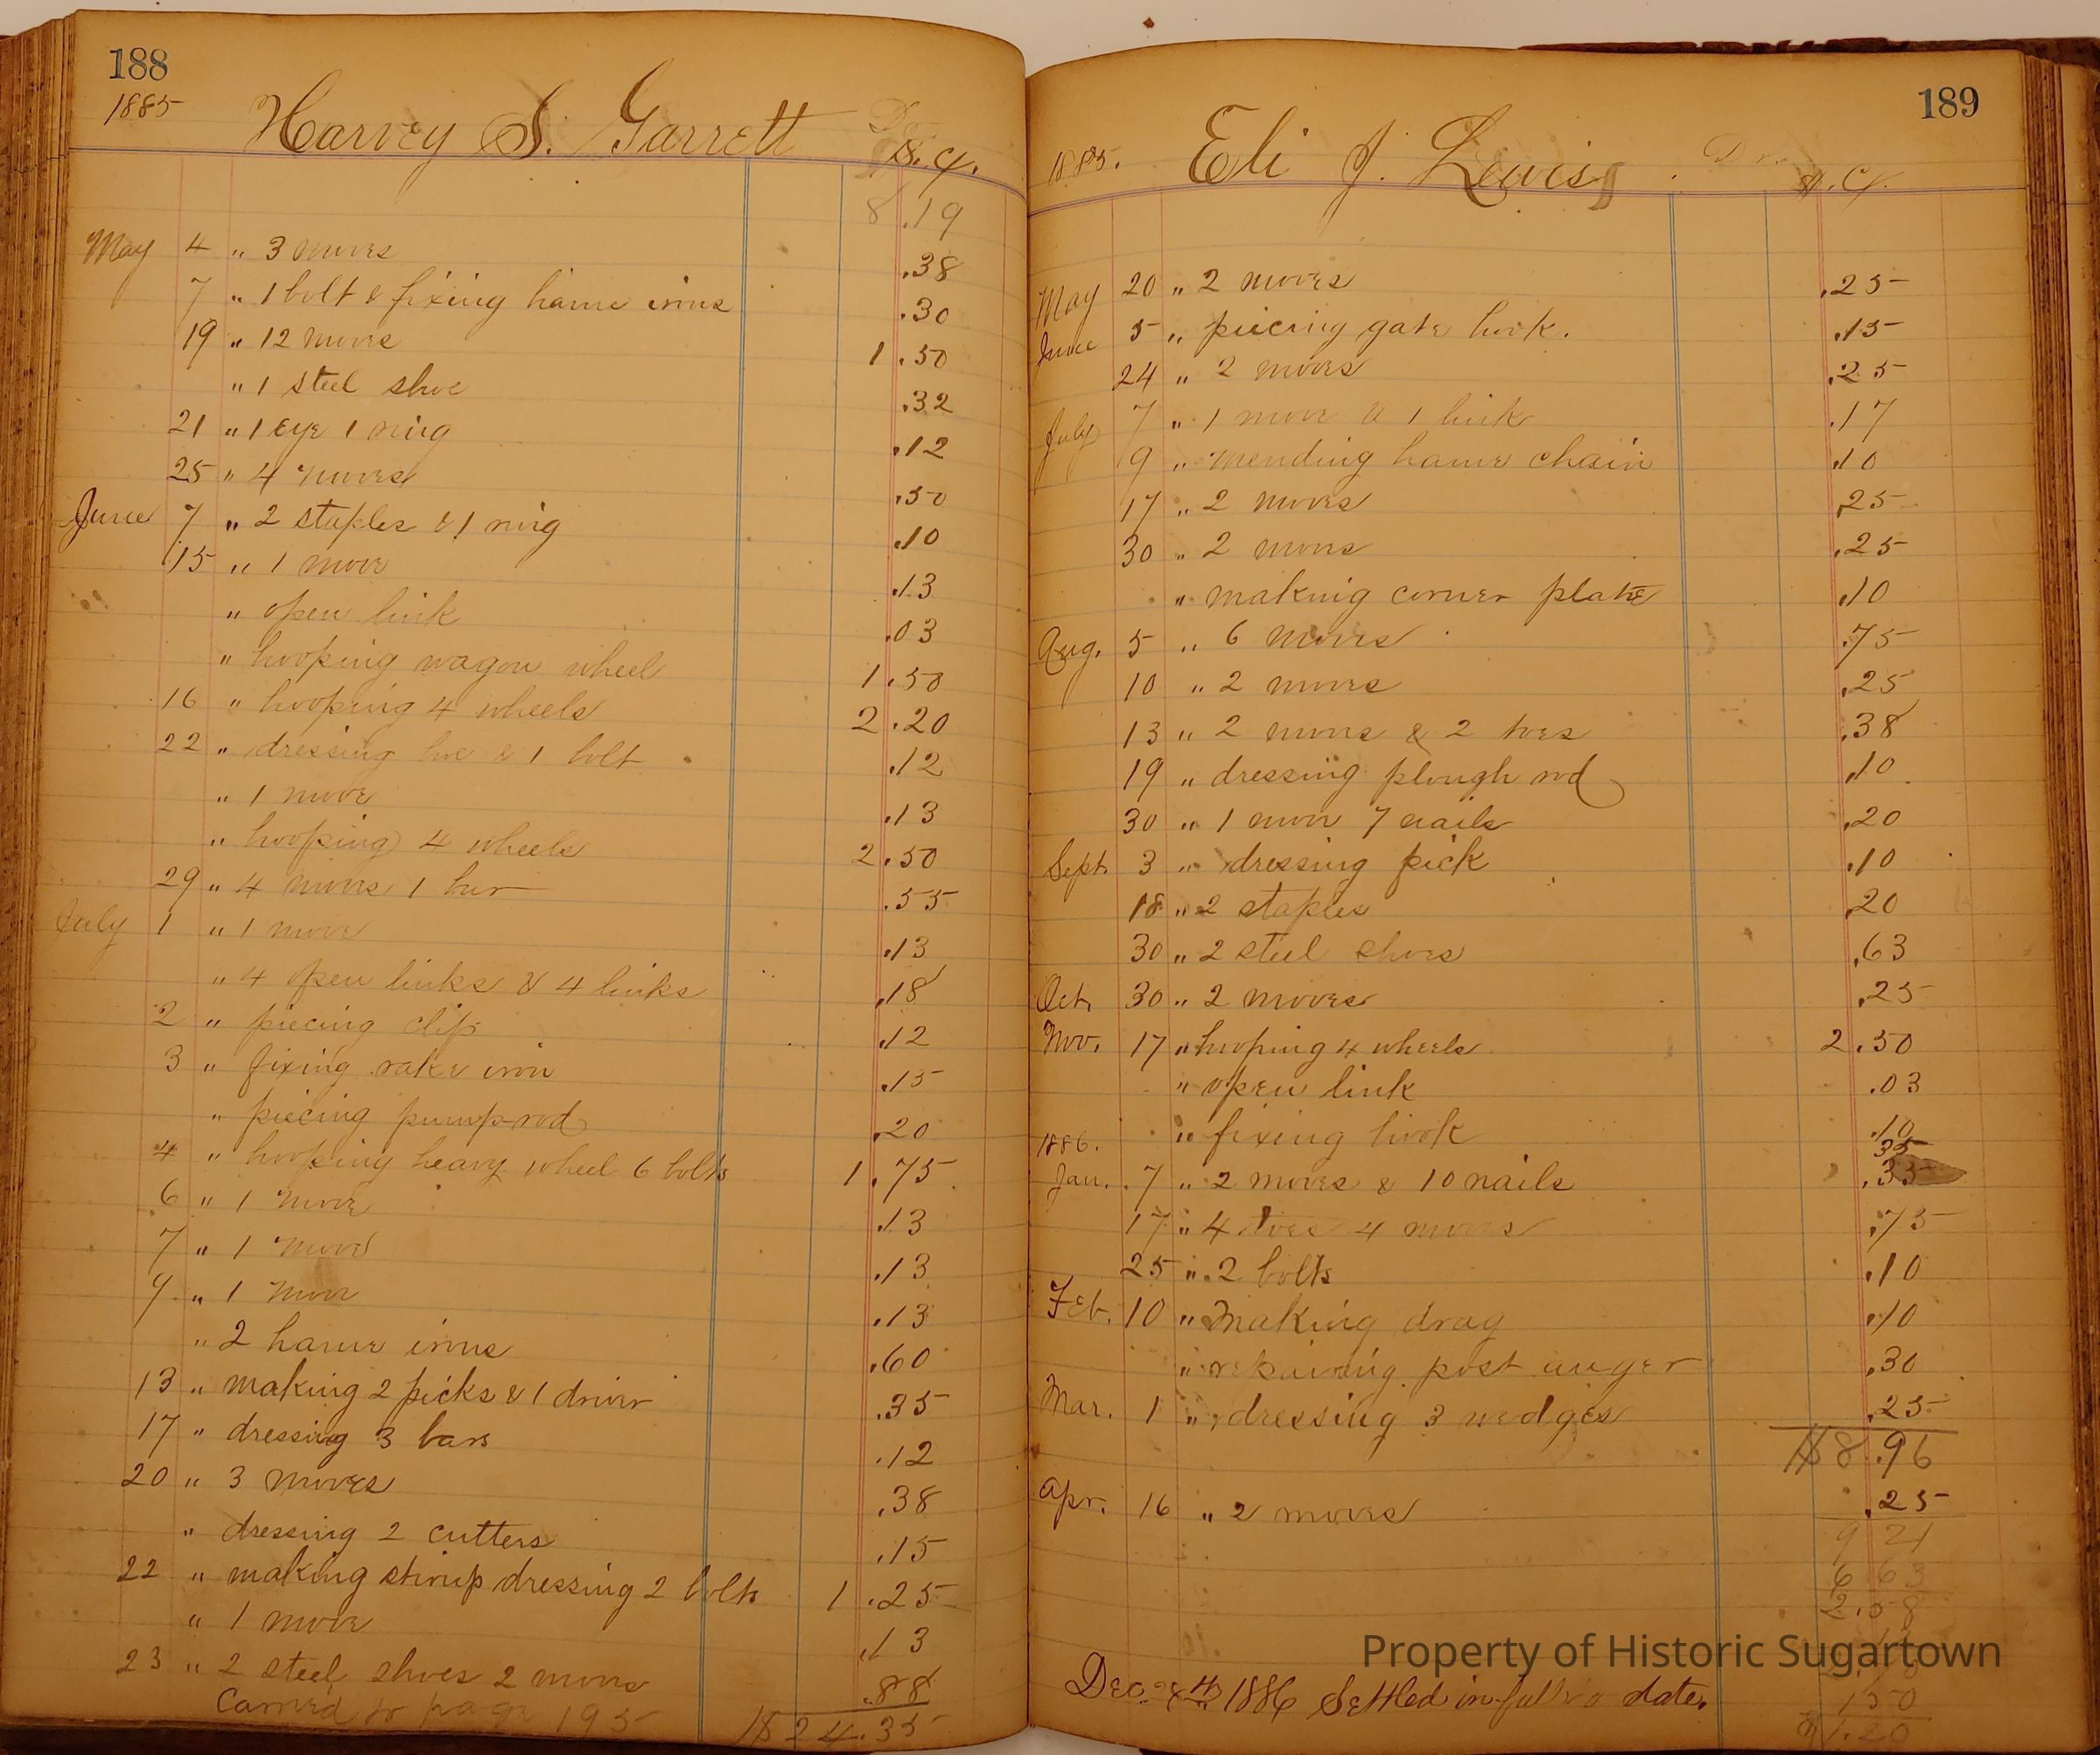 188
1885
Harvey S. Garrett
Dr.
$. c.
8.19
May 4 " 3 moves .38
7 " 1 bolt & fixing hame irons .30
19 " 12 moves 1.50
" 1 steel shoe .32
21 " 1 eye 1 ring .12
25 " 4 moves .50
June 7 " 2 staples & 1 ring .10
15 " 1 move .13
" open link .03
" hooping wagon wheel 1.50
16 " hooping 4 wheels 2.20
22 " dressing hoe & 1 bolt .12
" 1 move .13
" hooping 4 wheels 2.50
29 " 4 moves 1 bur .55
July 1 " 1 move .13
" 4 open links & 4 links .18
2 " piecing clip .12
3 " fixing rake iron .15
" piecing pump rod .20
4 " hooping heavy wheel 6 bolts 1.75
6 " 1 move .13
7 " 1 move .13
9 " 1 move .13
" 2 hame irons .60
13 " making 2 picks & 1 driver .35
17 " dressing 3 bars .12
20 " 3 moves .38
" dressing 2 cutters .15
22 " making stirup dressing 2 bolts 1.25
" 1 move .13
23 " 2 steel shoes 2 moves .88
Carried to page 195 $24.35
189
1885.
Eli J. Lewis
Dr.
$. c.
May 20 " 2 moves .25
June 5 " piecing gate hook. .15
24 " 2 moves .25
July 7 " 1 move & 1 link .17
9 " mending hame chain .10
17 " 2 moves .25
30 " 2 moves .25
" making corner plate .10
Aug. 5 " 6 moves .75
10 " 2 moves .25
13 " 2 moves & 2 toes .38
19 " dressing plough rod .10
30 " 1 move 7 nails .20
Sept. 3 " dressing pick .10
18 " 2 staples .20
30 " 2 steel shoes .63
Oct. 30 " 2 moves .25
Nov. 17 " hooping 4 wheels 2.50
" open link .03
" fixing hook .10
1886.
35
Jan. 7 " 2 moves & 10 nails .35
17 " 4 toes 4 moves .75
25 " 2 bolts .10
Feb. 10 " making drag .10
" repairing post auger .30
Mar. 1 " dressing 3 wedges .25
$8.96
Apr. 16 " 2 moves .25
9 21
6 63
2.58
Property of Historic Sugartown
Dec. 1886 Settled in full to date.
1 50
1.20